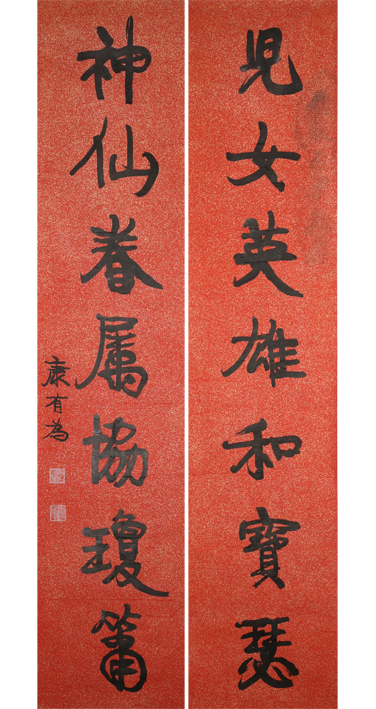 兒女英雄和寶瑟
神仙眷属協瓊簫
康有為